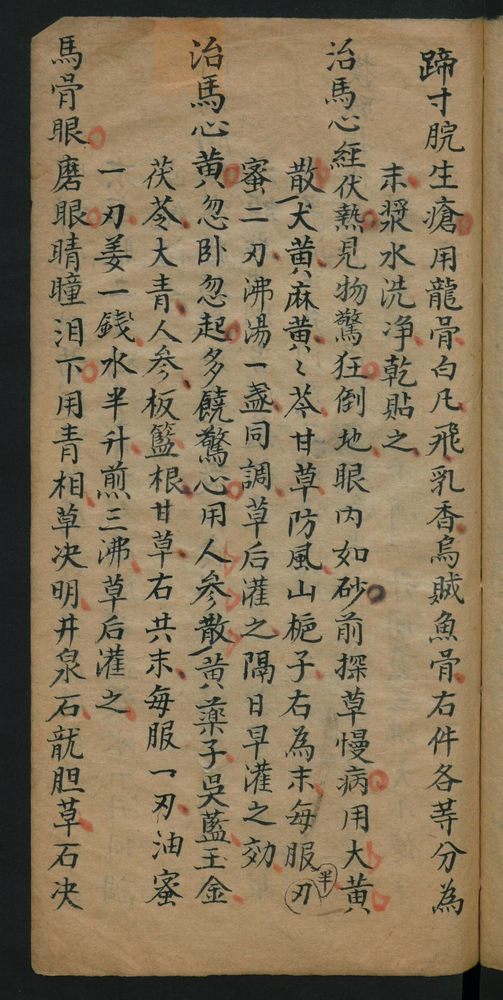 蹄寸脘生瘡用龍骨白凡飛乳香烏賊魚骨右件各等分為
末漿水洗净乾貼之
治馬心經伏熱見物驚狂倒地眼内如砂前探草慢病用大黄
散大黄麻黄〻芩甘草防風山梔子右為末每服半刃
蜜二刃沸湯一盞同調草后灌之隔日早灌之効
治馬心黄忽卧忽起多饒驚心用人参散黄藥子吳藍玉金
茯苓大青人参板籃根甘草右共末每服一刃油蜜
一刃姜一錢水半升煎三沸草后灌之
馬骨眼磨眼睛瞳泪下用青相草决明井泉石龍胆草石决